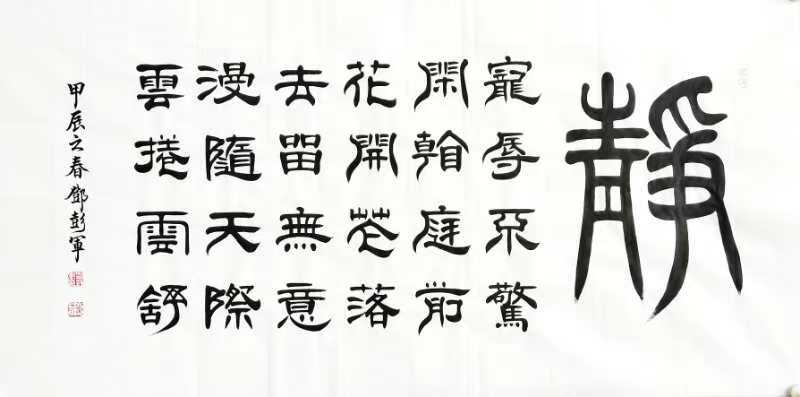 靜
寵辱不驚
閑看庭前
花開花落
去留無意
漫隨天際
雲捲雲舒
甲辰之春鄧彭軍